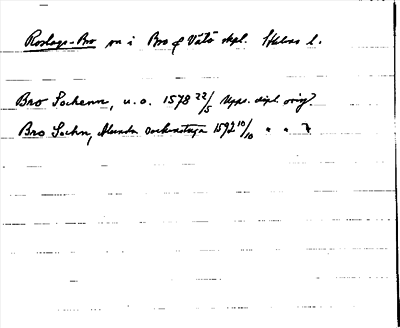 Roslags-Bro sn i Bro o Vätö skpl. Sthlms l.
Bro Sochenn, u. o. 1578 22/5 Upps. dipl. orig.
Bro Sochn, 1592 10/10 " " 7